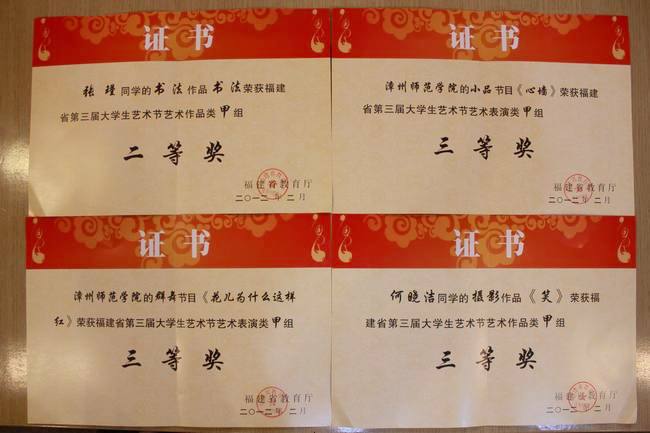 证书
张瑾同学的书法作品书法荣获福建
省第三届大学生艺术节艺术作品类甲组
二等奖
福建省教育厅
二〇一二年二月
证书
漳州师范学院的小品节目《心墙》荣获福建
省第三届大学生艺术节艺术表演类甲组
三等奖
福建省教育厅
二〇一二年二月
证书
漳州师范学院的群舞节目《花儿为什么这样
红》荣获福建省第三届大学生艺术节艺术表演类甲组
三等奖
福建省教育厅
二〇一二年二月
证书
何晓洁同学的摄影作品《笑》荣获福
建省第三届大学生艺术节艺术作品类甲组
三等奖
福建省教育厅
二〇一二年二月